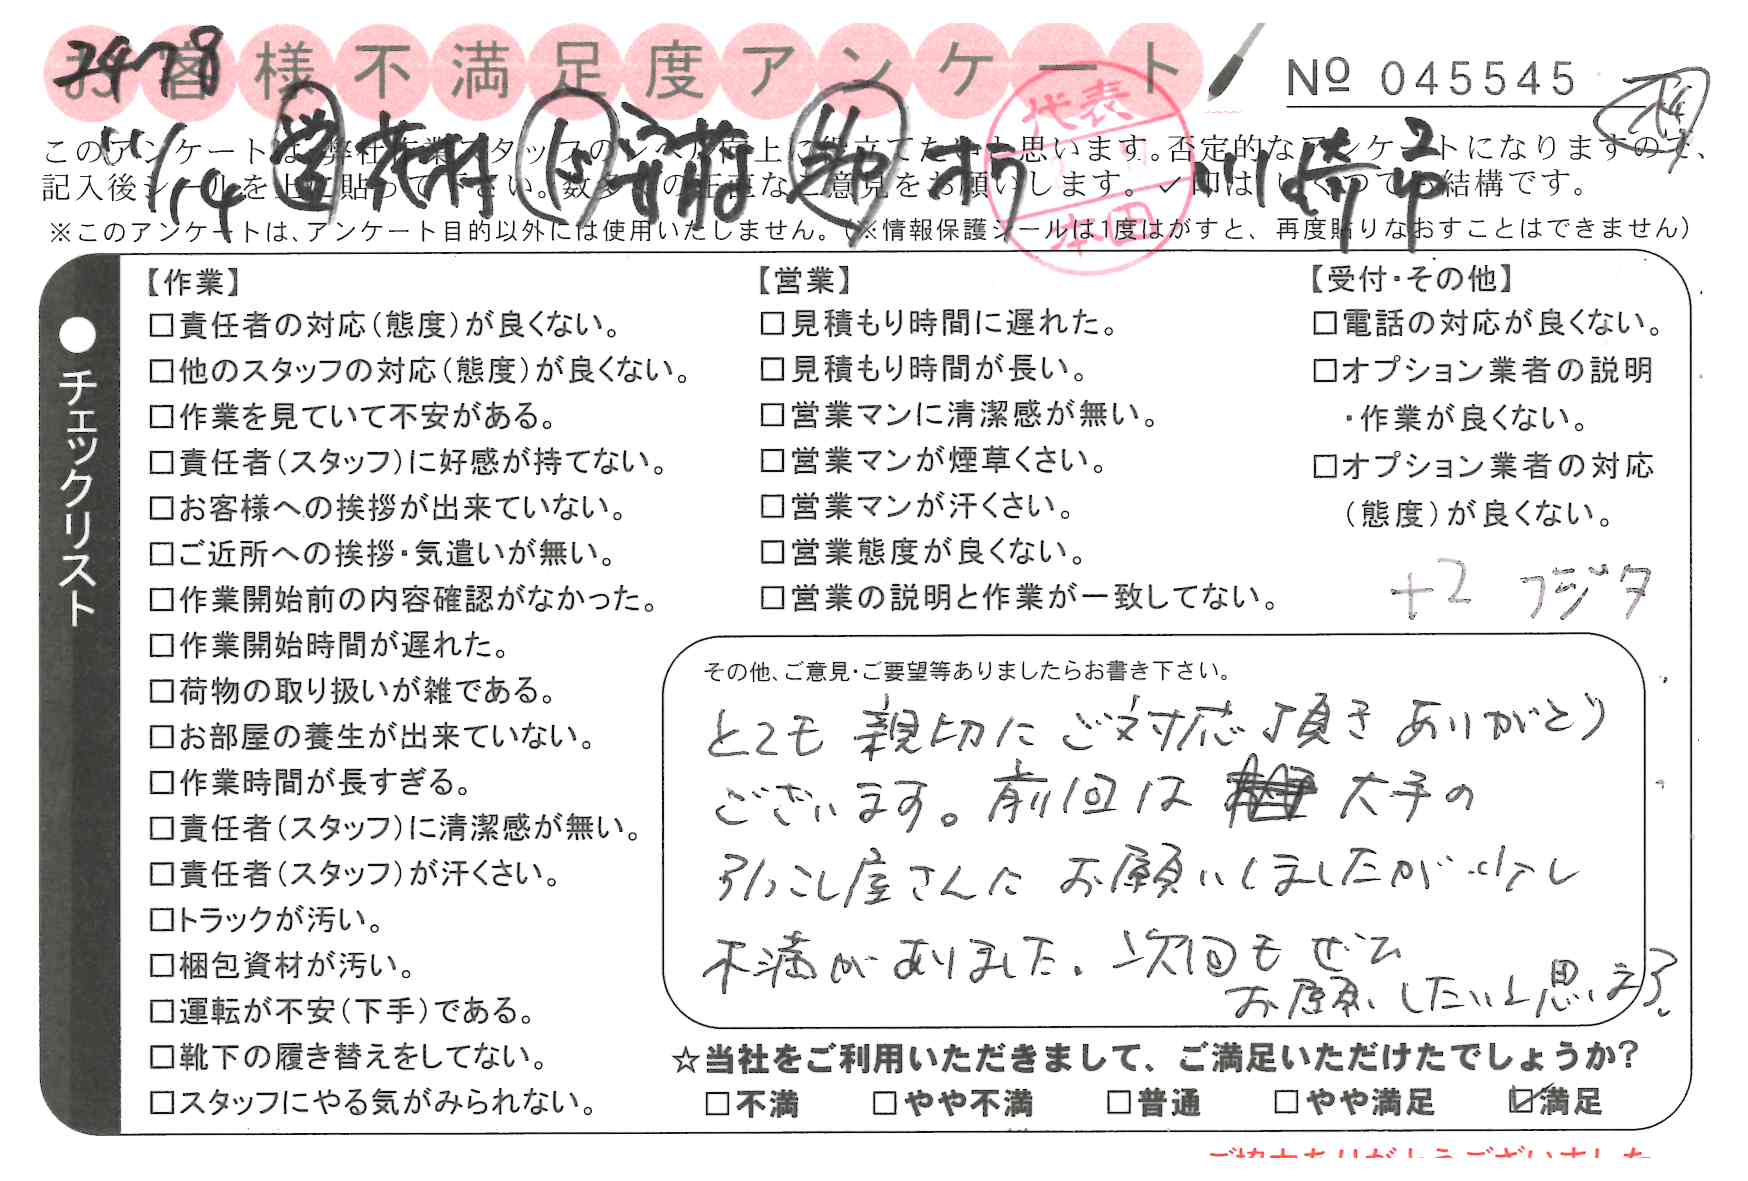 2478
お客様不満足度アンケート
№ 045545
11/14 営 花村 ド 斉藤 助 川崎市
このアンケートは、弊社作業スタッフのレベル向上に役立てたいと思います。否定的なアンケートになりますので、
記入後シールを上に貼って下さい。数多くの正直なご意見をお願いします。✓印はいくつでも結構です。
※このアンケートは、アンケート目的以外には使用いたしません。(※情報保護シールは1度はがすと、再度貼りなおすことはできません)
代表
本田
●チェックリスト
【作業】
□責任者の対応(態度)が良くない。
□他のスタッフの対応(態度)が良くない。
□作業を見ていて不安がある。
□責任者(スタッフ)に好感が持てない。
□お客様への挨拶が出来ていない。
□ご近所への挨拶・気遣いが無い。
□作業開始前の内容確認がなかった。
□作業開始時間が遅れた。
□荷物の取り扱いが雑である。
□お部屋の養生が出来ていない。
□作業時間が長すぎる。
□責任者(スタッフ)に清潔感が無い。
□責任者(スタッフ)が汗くさい。
□トラックが汚い。
□梱包資材が汚い。
□運転が不安(下手)である。
□靴下の履き替えをしてない。
□スタッフにやる気がみられない。
【営業】
□見積もり時間に遅れた。
□見積もり時間が長い。
□営業マンに清潔感が無い。
□営業マンが煙草くさい。
□営業マンが汗くさい。
□営業態度が良くない。
□営業の説明と作業が一致してない。
【受付・その他】
□電話の対応が良くない。
□オプション業者の説明
・作業が良くない。
□オプション業者の対応
(態度)が良くない。
+2 フジタ
その他、ご意見・ご要望等ありましたらお書き下さい。
とても親切にご対応頂きありがとう
ございます。前回は大手の
引っこし屋さんにお願いしましたが少し
不満がありました。次回もぜひ
お願いしたいと思います。
☆当社をご利用いただきまして、ご満足いただけたでしょうか?
□不満 □やや不満 □普通 □やや満足 ☑満足
ご協力ありがとうございました